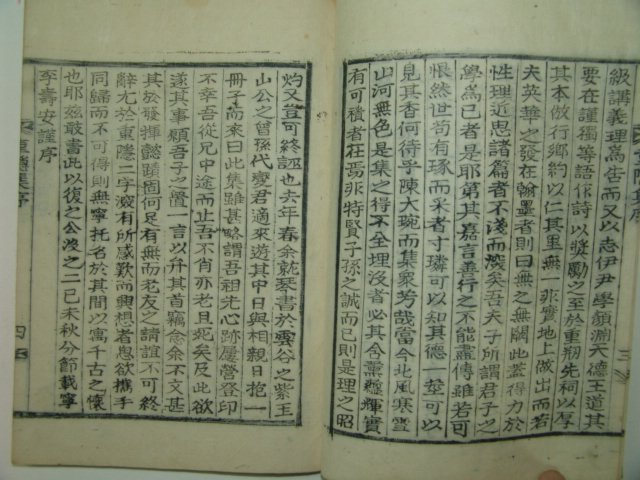 級講義理爲告而又以志伊尹學顔淵天德王道其
要在謹獨等語作詩以奬勵之至於重刱先祠以厚
其本倣行鄉約以仁其里無一非實地上做出而若
夫英華之發在翰墨者則曰無之無闕此蓋得力於
性理近思諸篇者不淺而深矣吾夫子所謂君子之
學爲己者是耶第其嘉言善行之不能盡傳雖若可
恨然世苟有琢而采者寸璘可以知其德一莖可以
見其香何待乎陳大琬而集衆芳哉當今北風寒雪
山河無色是集之得不全埋沒者必其含薰韞輝實
有可積者在焉非特賢子孫之誠而已則是理之昭
灼又豈可終誣也去年春余就琴書於雲谷之紫玉
山公之曾孫代變君適來遊其中日與相親日抱一
冊子而來曰此集雖甚略謂吾祖先心跡屢營登印
不幸吾從兄中途而止吾不肖亦老且死矣及此欲
遂其事願吾子之置一言以弁其首竊念余不文甚
其於發揮懿蹟固何足有無而老友之請誼不可終
辭尤於東隱二字深有所感歎而興想者思欲攜手
同歸而不可得則無寧托名於其間以寓千古之懷
也耶玆敢書此以復之公沒之二己未秋分節載寧
李壽安謹序
四
三